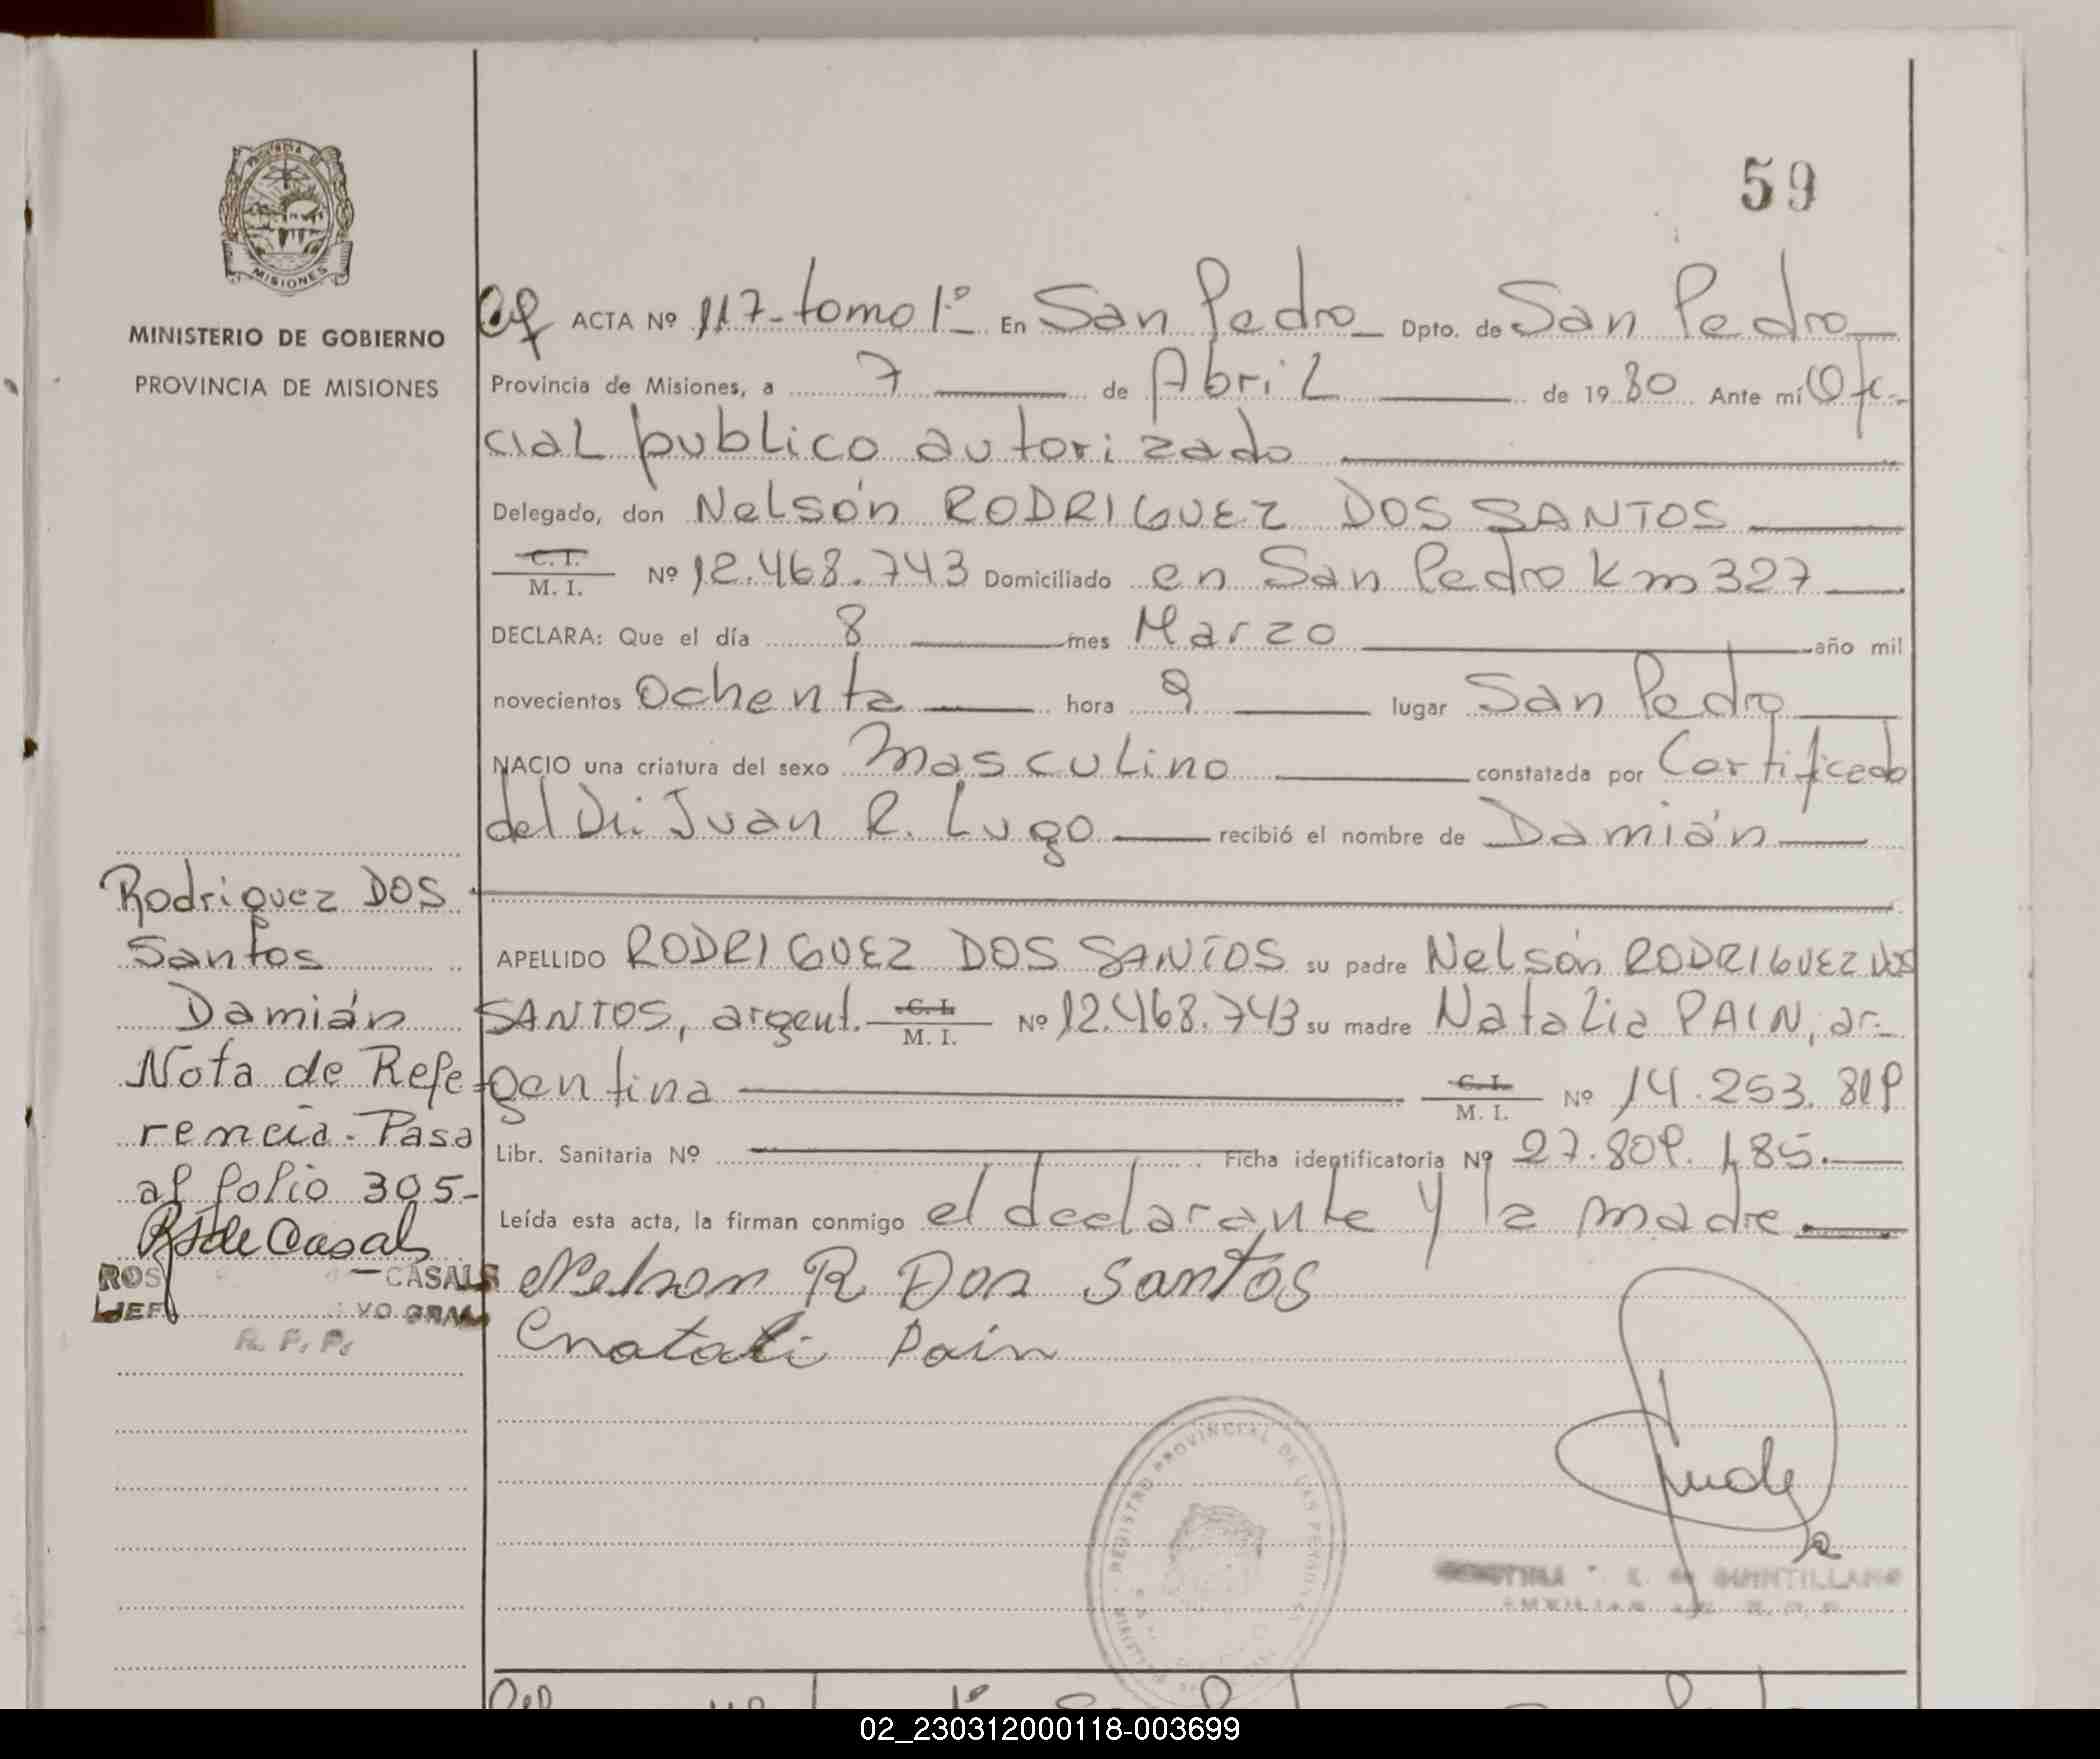 59
PROVINCIA DE
MISIONES
MINISTERIO DE GOBIERNO
PROVINCIA DE MISIONES
ACTA Nº 117-tomo 1º- En San Pedro Dpto. de San Pedro
Provincia de Misiones, a 7 de Abril de 1980 Ante mí Ofi-
cial publico autorizado
Delegado, don Nelsón RODRIGUEZ DOS SANTOS
C. I.
M. I. Nº 12.468.743 Domiciliado en San Pedro Km 327
DECLARA: Que el día 8 mes Marzo año mil
novecientos Ochenta hora 9 lugar San Pedro
NACIO una criatura del sexo Masculino constatada por Certificado
del Dr. Juan R. Lugo recibió el nombre de Damián
APELLIDO RODRIGUEZ DOS SANTOS su padre Nelsón RODRIGUEZ DOS
SANTOS, argent. C. I. M. I. Nº 12.468.743 su madre Natalia PAIN, ar-
gentina C. I. M. I. Nº 14.253.819
Libr. Sanitaria Nº Ficha identificatoria Nº 27.809.185.
Leída esta acta, la firman conmigo el declarante y la madre.
Nelson R Dos Santos
Natali Pain
Rodriguez DOS
Santos
Damián
Nota de Refe-
rencia. Pasa
al folio 305-
CASALS
R. P. P.
REGISTRO PROVINCIAL DE LAS PERSONAS
QUINTILLANO
02_230312000118-003699